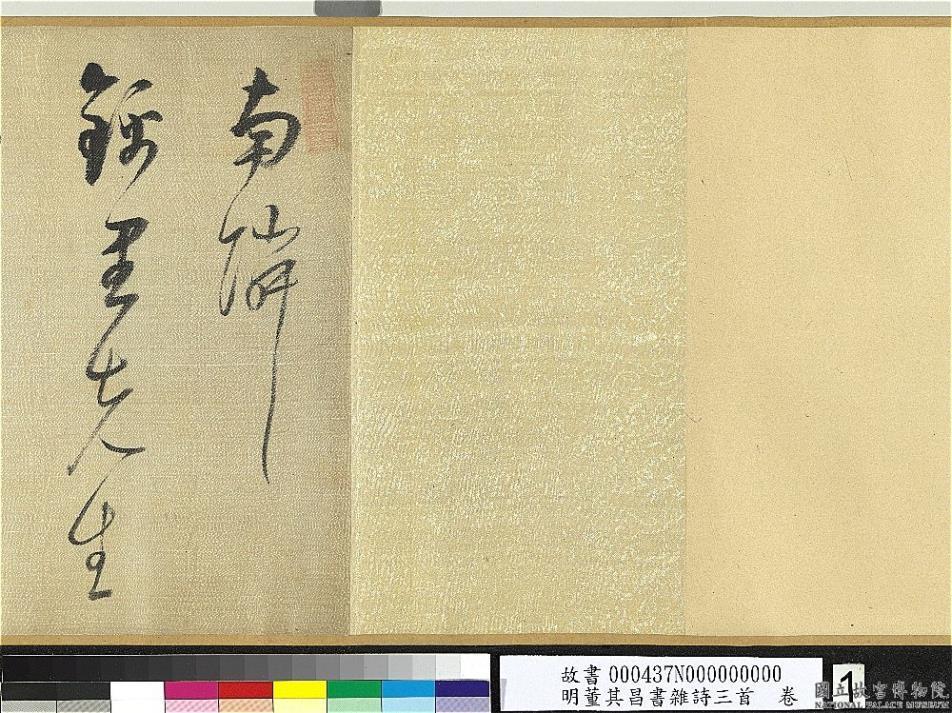 南隣
錦里先生
故書 000437N000000000
明董其昌書雜詩三首 卷
1
國立故宮博物院
NATIONAL PALACE MUSEUM